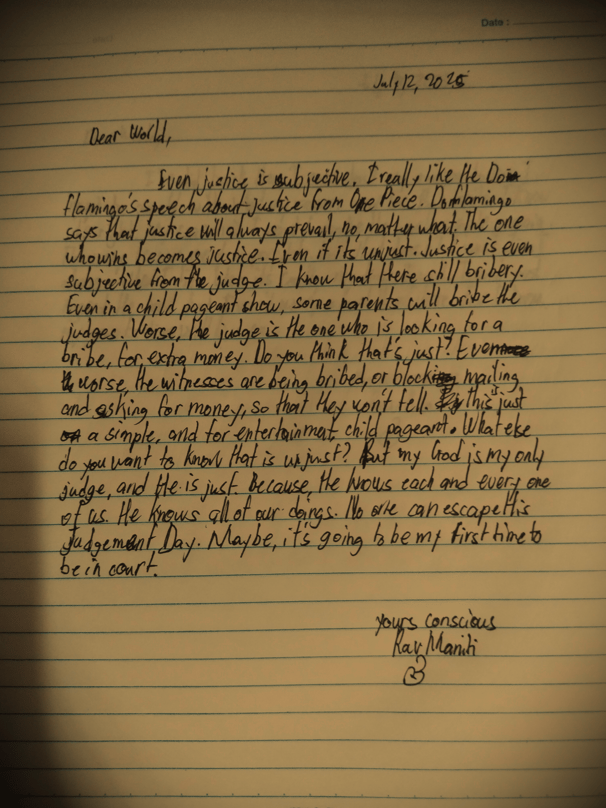 Date:
July, 12, 2025
Dear World,
Even, justice is subjective. I really like He Do
flamingo's speech about justice from One Piece. Domflamingo
says that justice will always prevail, no, matter what. The one
who wins becomes justice. Even if its unjust. Justice is even
subjective from the judge. I know that there still bribery.
Even in a child pageant show, some parents will bribe the
judges. Worse, the judge is the one who is looking for a
bribe, for extra money. Do you think that's just? Even
worse, the witnesses are being bribed, or block mailing
and asking for money, so that they won't tell. this is just
a simple, and for entertainment child pageant. What else
do you want to know that is unjust? But my God is my only
judge, and He is just. Because, He knows each and every one
of us. He knows all of our doings. No one can escape His
Judgement Day. Maybe, it's going to be my first time to
be in court.
yours conscious